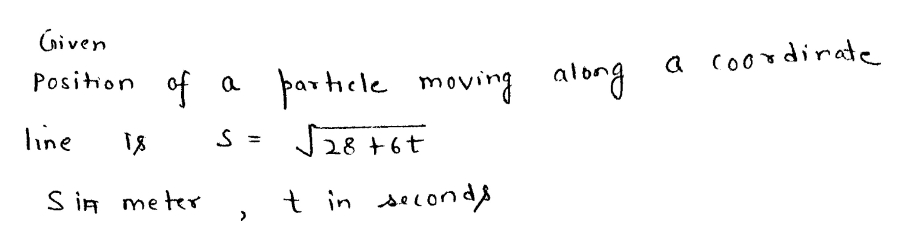 Given
Position of a particle moving along a coordinate
line is s = √28+6t
S in meter , t in seconds